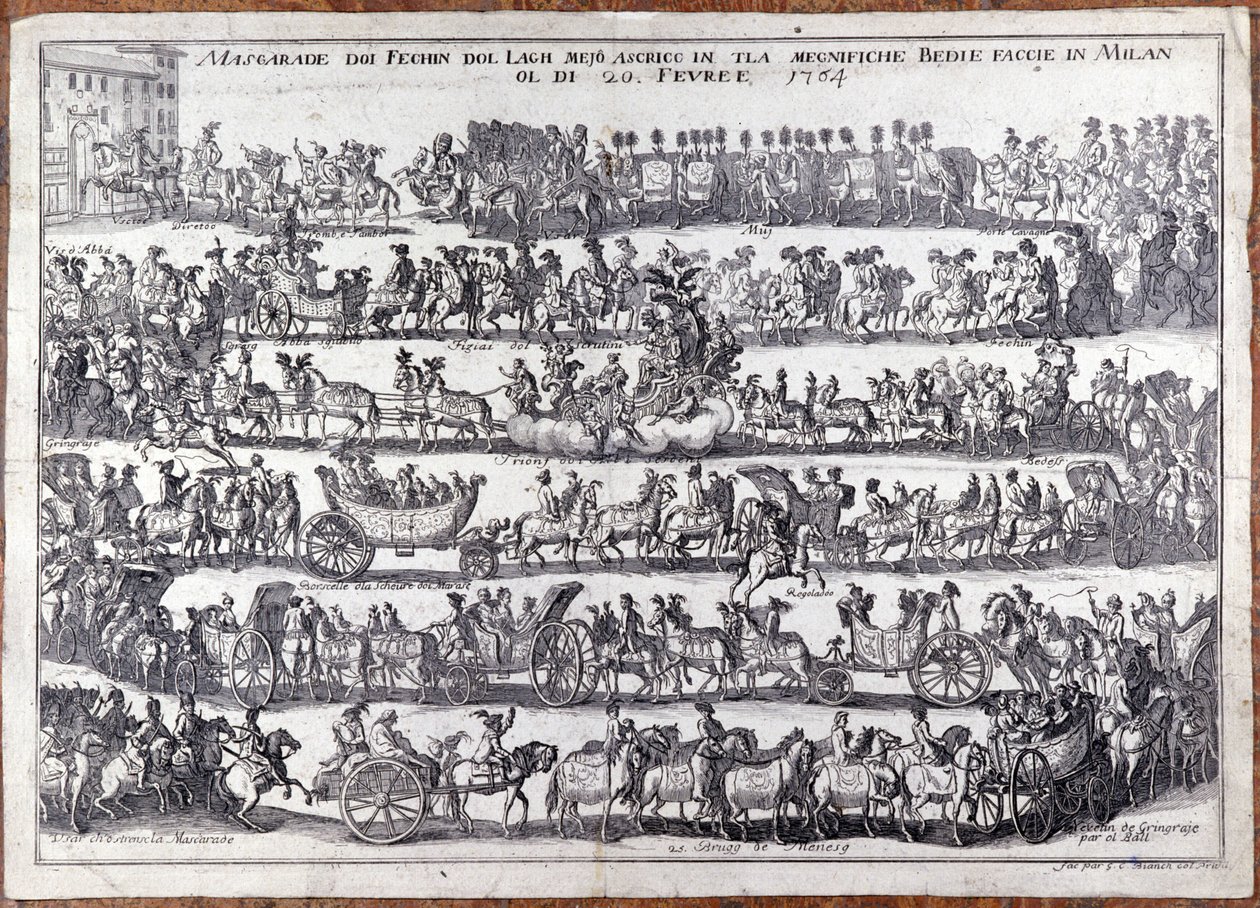 MASCARADE DOI FECHIN DOL LAGH MEJÔ ASCRICC IN TLA MEGNIFICHE BEDIE FACCIE IN MILAN
OL DI 20. FEVREE 1764
Diretoo
Tromb, e Tambor
Muj
Porte Cavagne
Vis d'Abbá
Abbá
Fiziai dol Scrutini
Fechin
Gringraje
Trionf
Bedess
Borscelle dla Scheure doi Marasc
Regoladóo
Vsar ch'o strensc la Mascarade
25. Brugg de Menesg
de Gringraje
par ol Ball
fac par G. C. Bianch